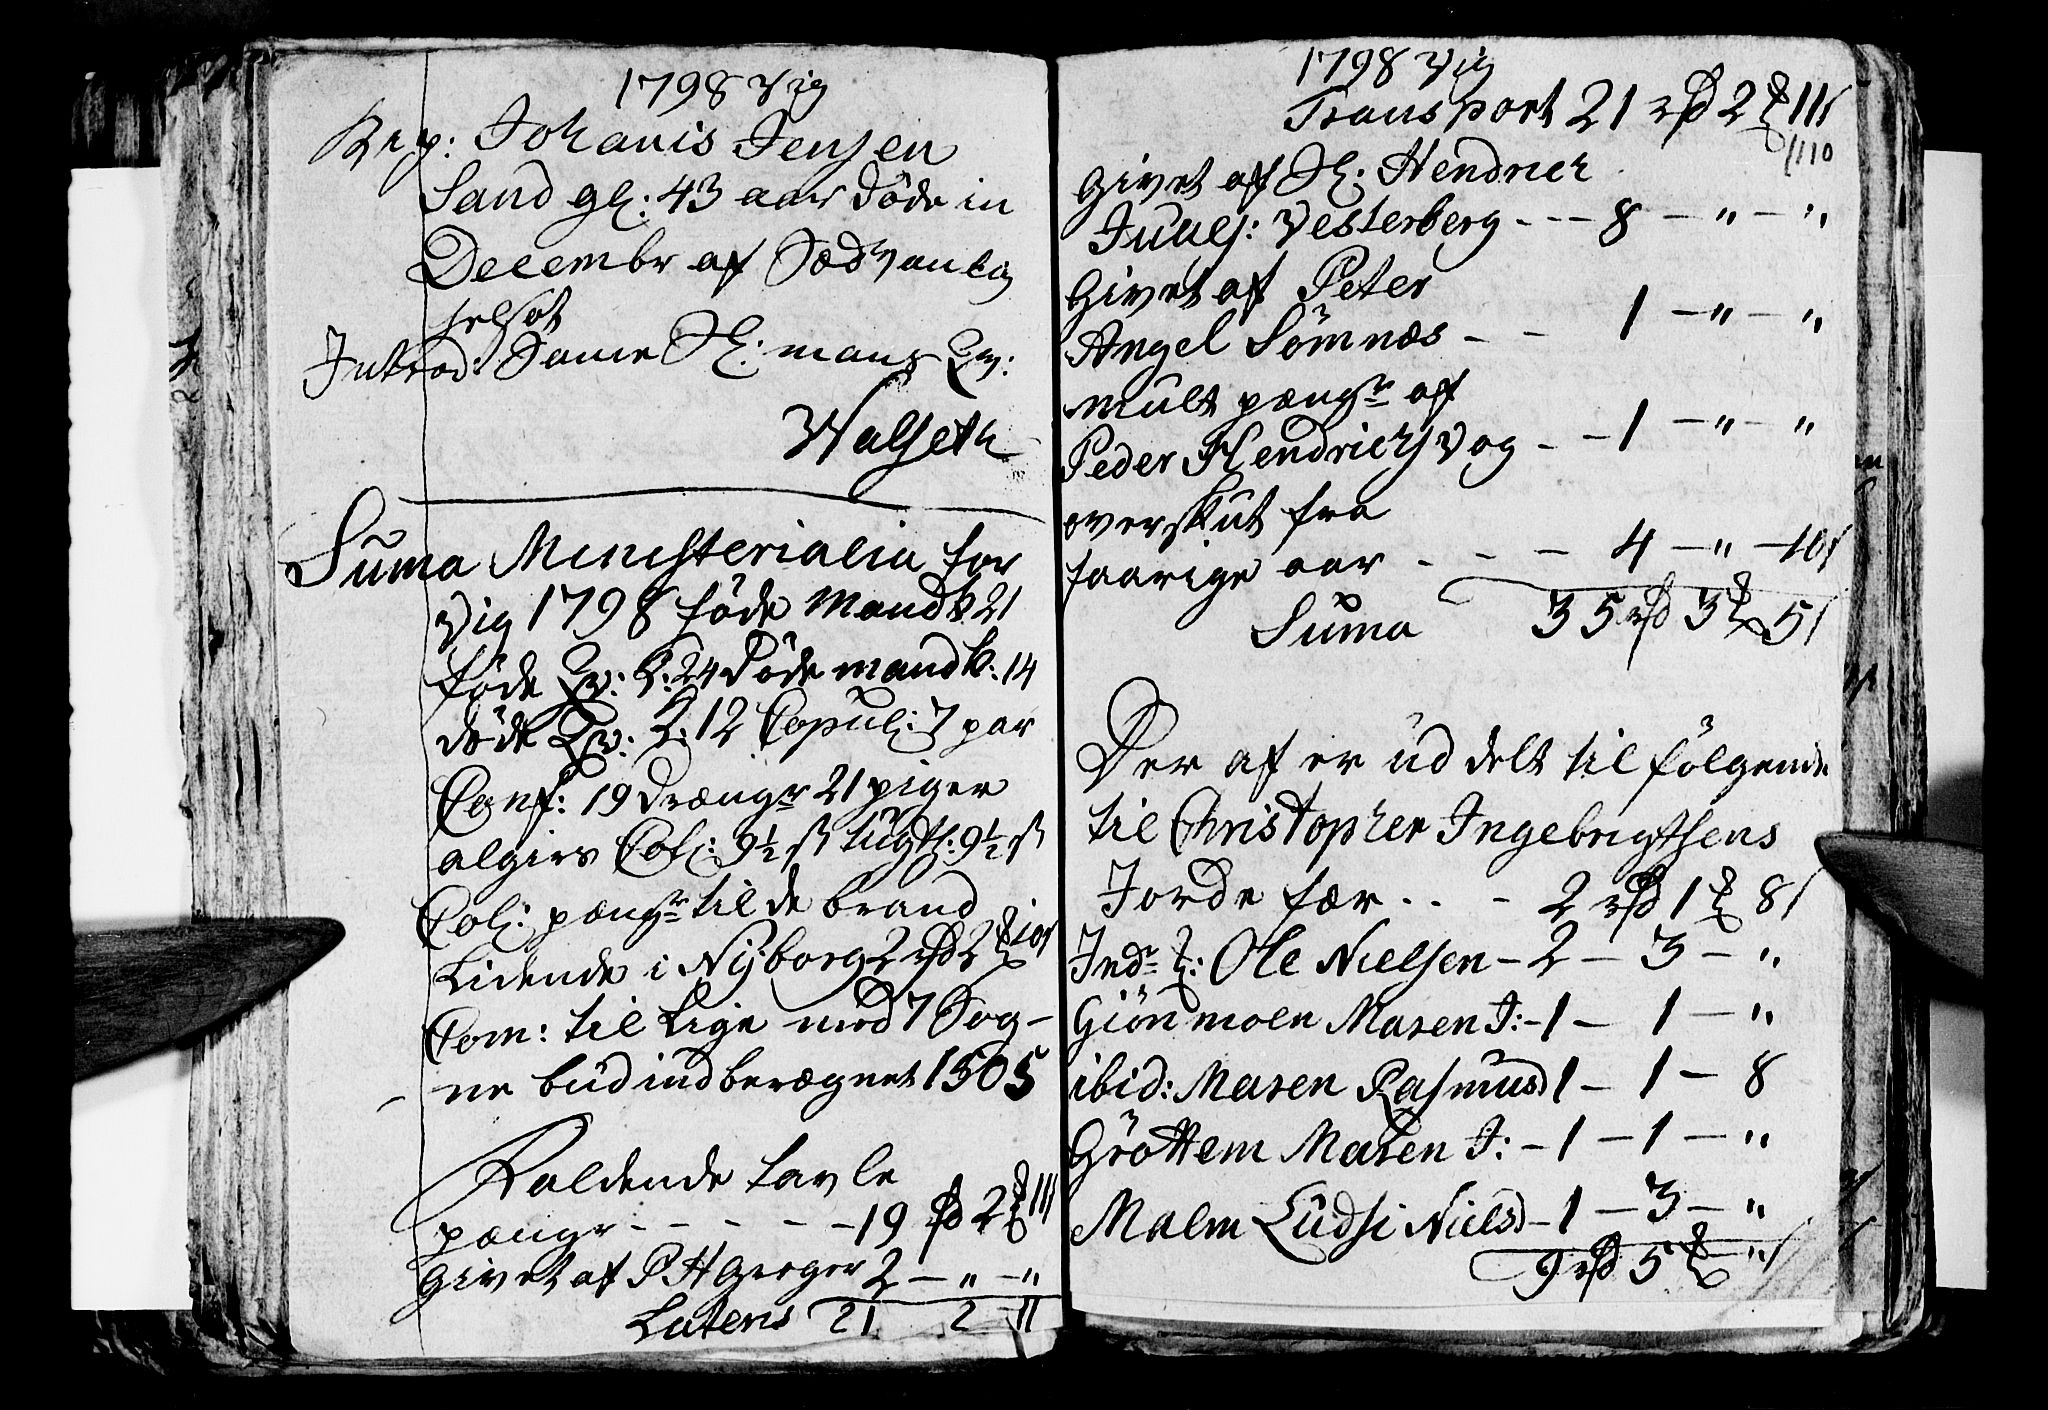 1798 Vig
Johanis Jensen
Sand gl: 43 aar døde in
Decembr af Sædvanlig
helsot
Introd: Samme mans Qv:
Walseth
Suma Ministerialia for
Vig 1798 føde Mandk 21
føde Qv: K: 24 Døde mandk: 14
døde Qv: K: 12 Copul: 7 par
Conf: 19 drænge 21 piger
algirs Col: 9½ ß tugth: 9½ ß
Col: pænge til de brand
Lidende i Nyborg 2 rd 2 10 s
Com: til Lige med 7 Sog-
ne bud indberægnet 1505
Faldende tavle
pænge - - - - - 19 rd 2 11 s
Givet af P H 2 — " — "
Latens 21 2 11
1798 Vig
Transport 21 rd 2 11 s
110
Givet af Hr: Hendrich
Juuls: Vesterberg - - - 8 — " — "
Givet af Peter
Angel Sømnæs - - 1 — " — "
Mult pænge af
Peder Hendrichs Vog - - 1 — " — "
overskut fra
faarige aar - - - 4 — " — 10 s
Suma 35 rd 3 5 s
Der af er ud delt til følgende
til Christopher Ingebrigtsens
Jorde fær . . - 2 rd 1 8 s
Ole Nielsen - 2 — 3 — "
Giön moen Maren J: - 1 — 1 — "
ibid: Maren Rasmusd 1 — 1 — 8
Gröttem Maren J: - 1 — 1 — "
Malm Ludsi Nielsd - 1 — 3 — "
9 rd 5 " s